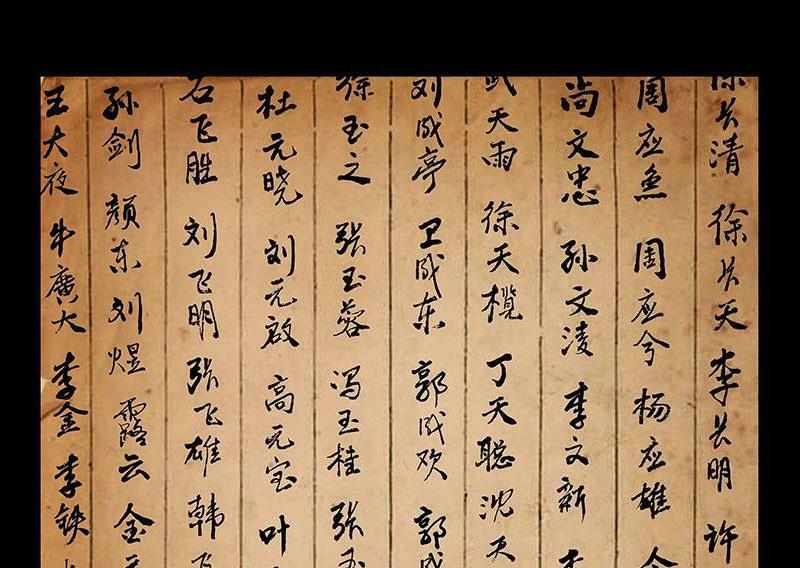 徐长清 徐长天 李长明 许
周应鱼 周应兮 杨应雄
尚文忠 孙文凌 李文新 李
武天雨 徐天榄 丁天聪 沈天
刘成亭 卫成东 郭成欢 郭成
徐玉之 张玉蓉 冯玉桂 张玉
杜元晓 刘元启 高元宝 叶
石飞胜 刘飞明 张飞雄 韩飞
孙剑 颜东 刘煜 露云 金
王大夜 牛廣大 李金 李铁